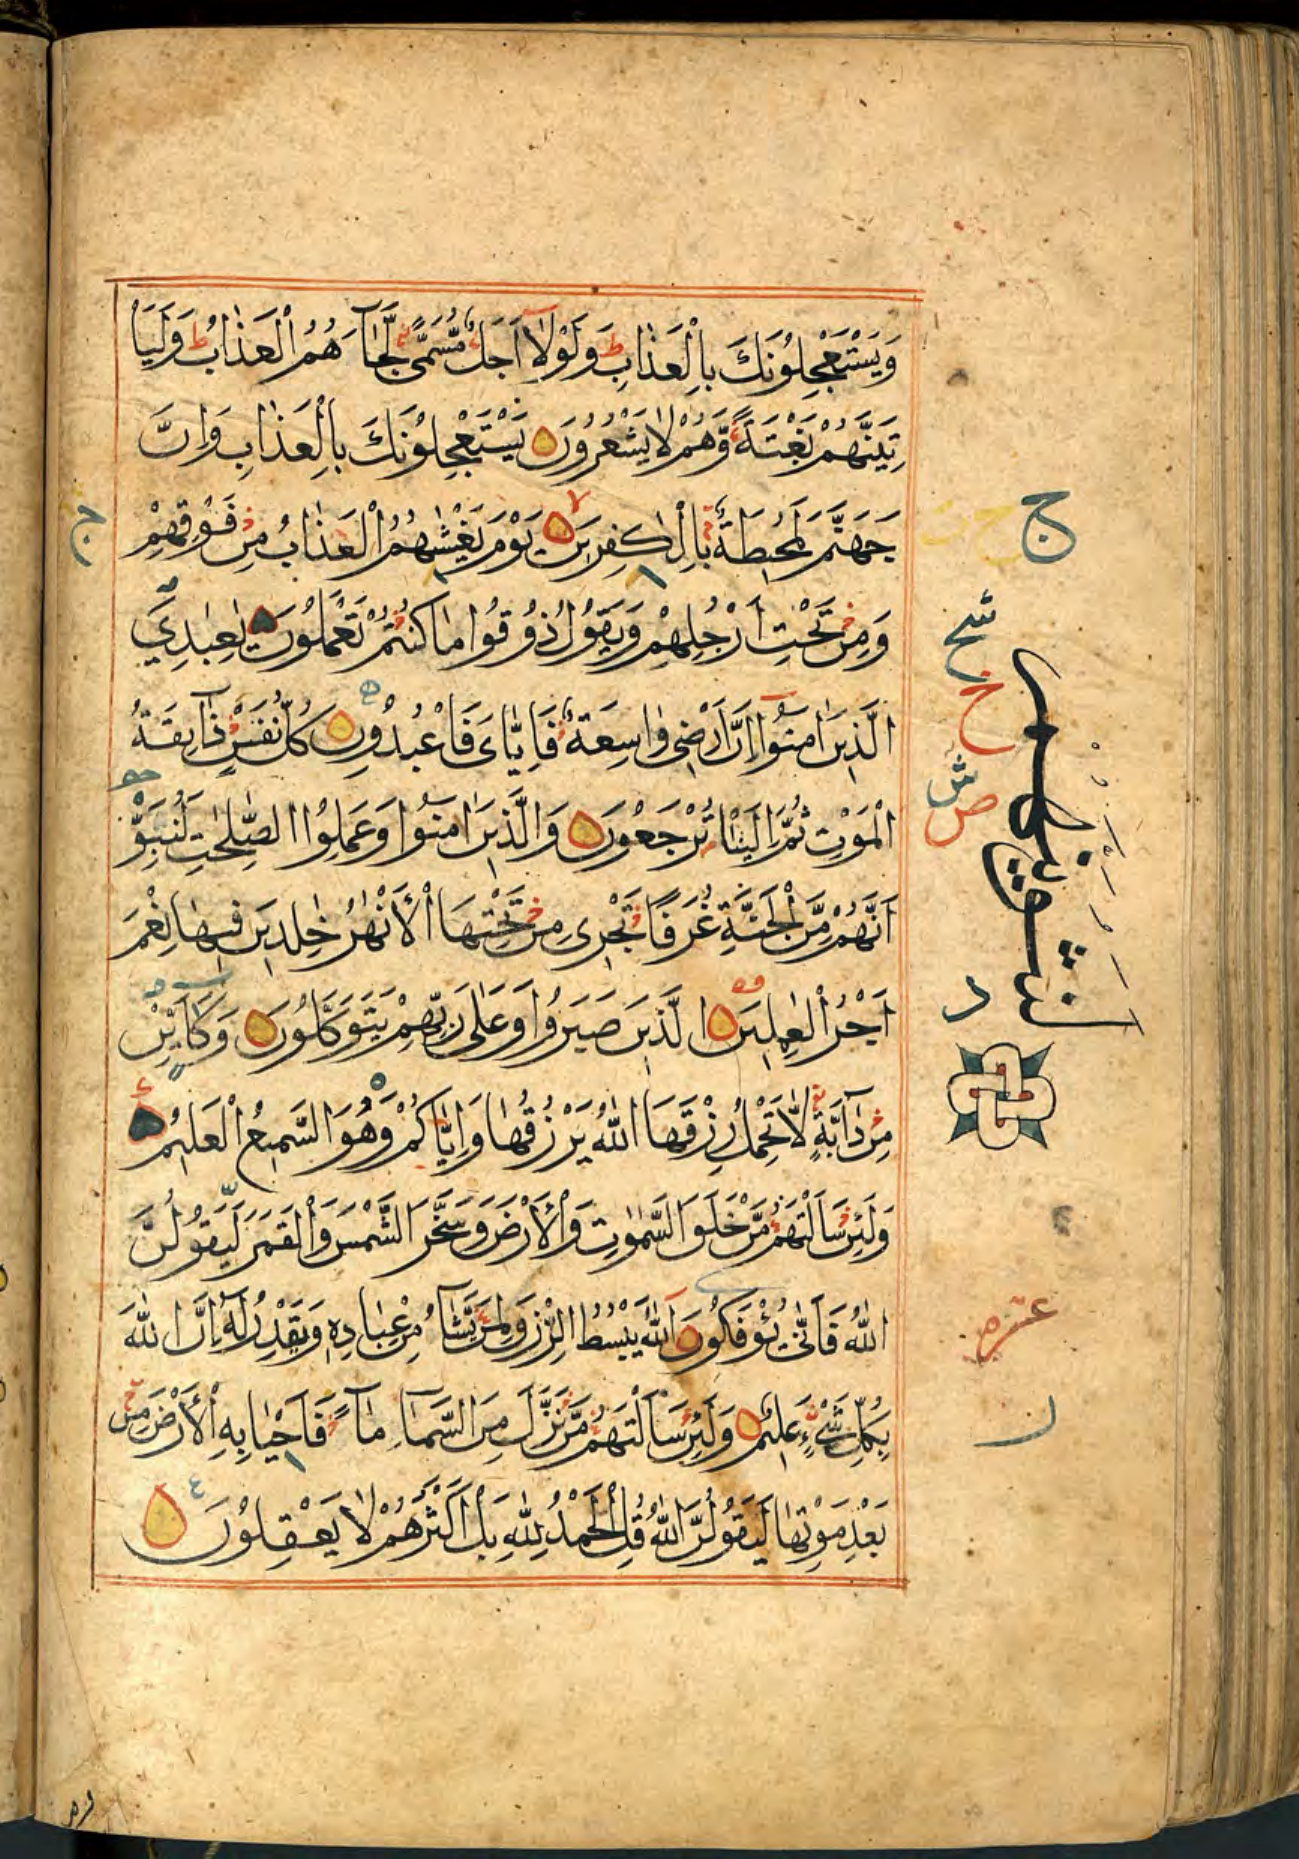 وَيَسْتَعْجِلُوْنَكَ بِالْعَذَابِ ط وَلَوْلَآ اَجَلٌ مُّسَمًّى لَّجَآءَهُمُ الْعَذَابُ ط وَلَيَاْ
تِيَنَّهُمْ بَغْتَةً وَّهُمْ لَا يَشْعُرُوْنَ يَسْتَعْجِلُوْنَكَ بِالْعَذَابِ وَاِنَّ
جَهَنَّمَ لَمُحِيْطَةٌ بِالْكٰفِرِيْنَ لا يَوْمَ يَغْشٰىهُمُ الْعَذَابُ مِنْ فَوْقِهِمْ
وَمِنْ تَحْتِ اَرْجُلِهِمْ وَيَقُوْلُ ذُوْقُوْا مَا كُنْتُمْ تَعْمَلُوْنَ يٰعِبَادِيَ
الَّذِيْنَ اٰمَنُوْٓا اِنَّ اَرْضِيْ وَاسِعَةٌ فَاِيَّايَ فَاعْبُدُوْنِ كُلُّ نَفْسٍ ذَآئِقَةُ
الْمَوْتِ ثُمَّ اِلَيْنَا تُرْجَعُوْنَ وَالَّذِيْنَ اٰمَنُوْا وَعَمِلُوا الصّٰلِحٰتِ لَنُبَوِّ
ئَنَّهُمْ مِّنَ الْجَنَّةِ غُرَفًا تَجْرِيْ مِنْ تَحْتِهَا الْاَنْهٰرُ خٰلِدِيْنَ فِيْهَا نِعْمَ
اَجْرُ الْعٰمِلِيْنَ الَّذِيْنَ صَبَرُوْا وَعَلٰى رَبِّهِمْ يَتَوَكَّلُوْنَ وَكَاَيِّنْ
مِنْ دَآبَّةٍ لَّا تَحْمِلُ رِزْقَهَا اللّٰهُ يَرْزُقُهَا وَاِيَّاكُمْ وَهُوَ السَّمِيْعُ الْعَلِيْمُ
وَلَئِنْ سَاَلْتَهُمْ مَّنْ خَلَقَ السَّمٰوٰتِ وَالْاَرْضَ وَسَخَّرَ الشَّمْسَ وَالْقَمَرَ لَيَقُوْلُنَّ
اللّٰهُ فَاَنّٰى يُؤْفَكُوْنَ اَللّٰهُ يَبْسُطُ الرِّزْقَ لِمَنْ يَّشَآءُ مِنْ عِبَادِهٖ وَيَقْدِرُ لَهٗ اِنَّ اللّٰهَ
بِكُلِّ شَيْءٍ عَلِيْمٌ وَلَئِنْ سَاَلْتَهُمْ مَّنْ نَّزَّلَ مِنَ السَّمَآءِ مَآءً فَاَحْيَا بِهِ الْاَرْضَ مِنْ
بَعْدِ مَوْتِهَا لَيَقُوْلُنَّ اللّٰهُ قُلِ الْحَمْدُ لِلّٰهِ بَلْ اَكْثَرُهُمْ لَا يَعْقِلُوْنَ
ج
ح
شح
خ
ش
ص
د
ل